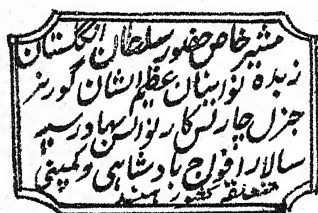 مشیر خاص حضور سلطان انگلستان
زبده نوئینان عظیم الشان گورنر
جنرل چارلس کارنوالس بهادر سپه
سالار افواج بادشاهی و کمپنی
متعلقه کشور هند